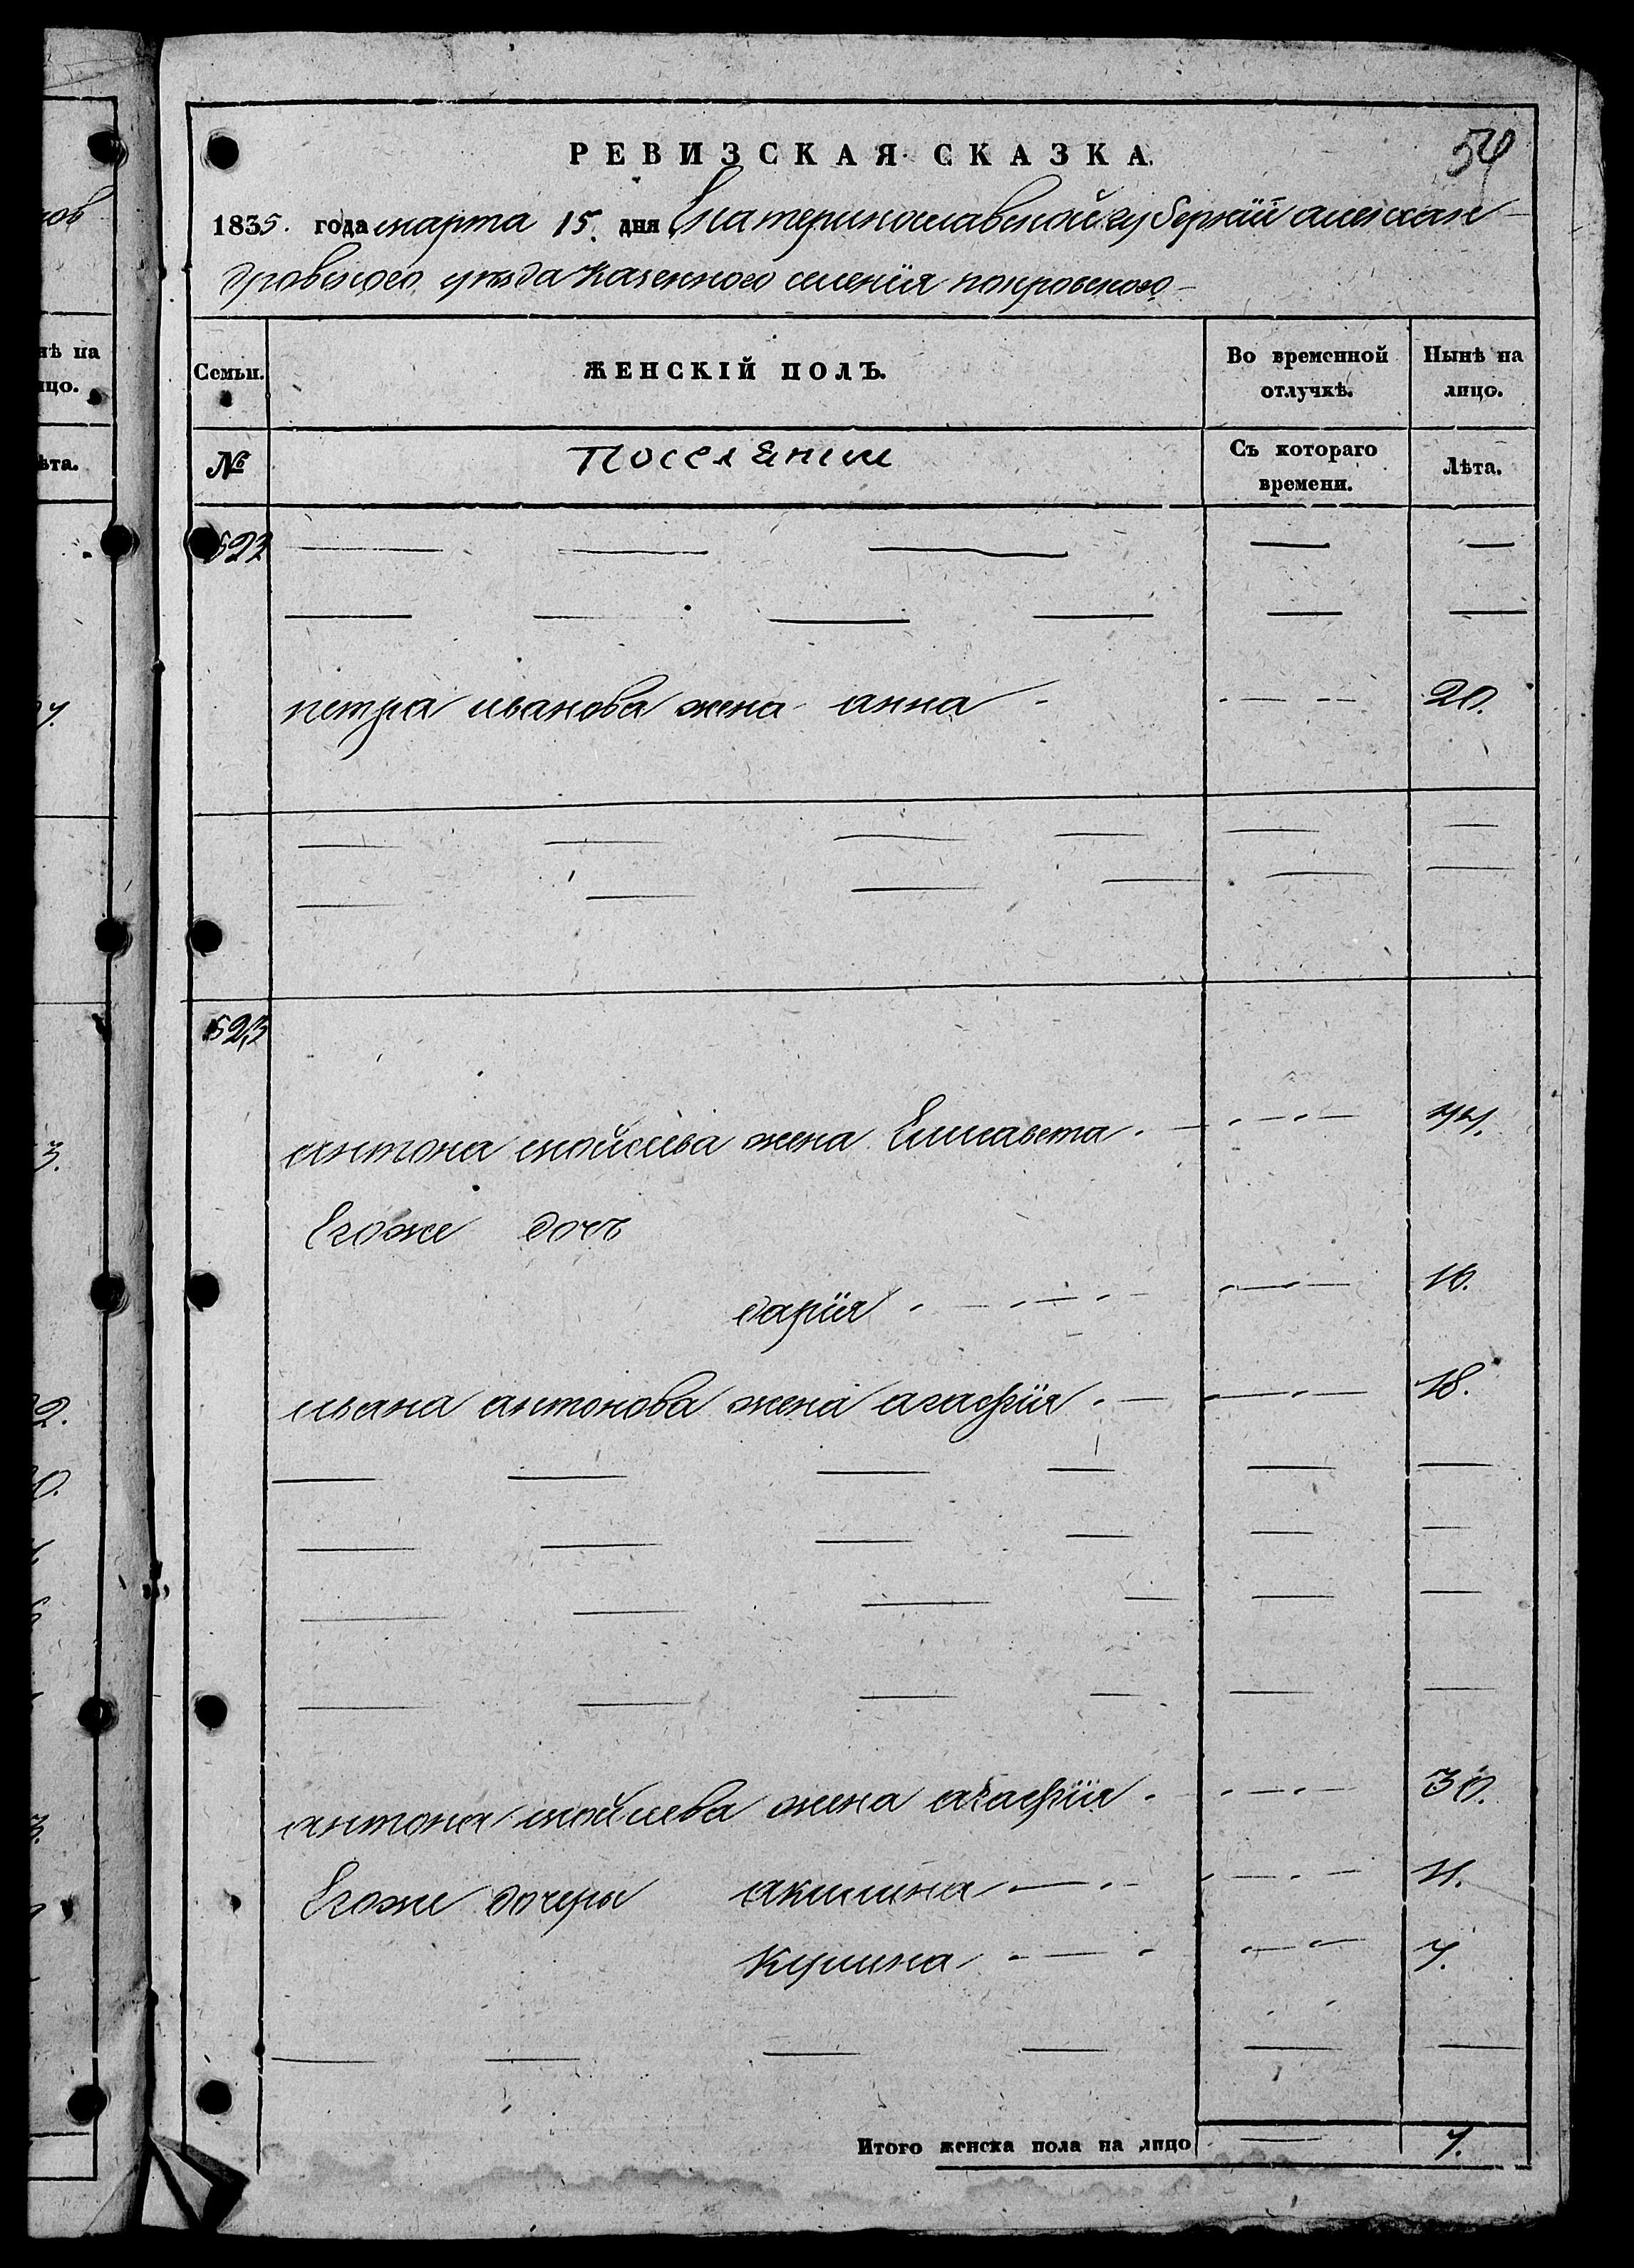 РЕВИЗСКАЯ СКАЗКА.
54
1835. года марта 15. дня Екатеринославской губернїи алексан-
дровского уѣзда казенного селенїя покровского
Семьи.
ЖЕНСКІЙ ПОЛЪ.
Во временной отлучкѣ.
Нынѣ на лицо.
№
Поселянки
Съ котораго времени.
Лѣта.
522
петра иванова жена анна 20.
523
антона мойсѣева жена Елисавета 44.
Егоже дочь
дарїя 16.
ивана антонова жена агафїя 18.
антона мойсѣева жена агафїя 30.
Егоже дочеры акилина 11.
Кулина 7.
Итого женска пола на лицо 7.